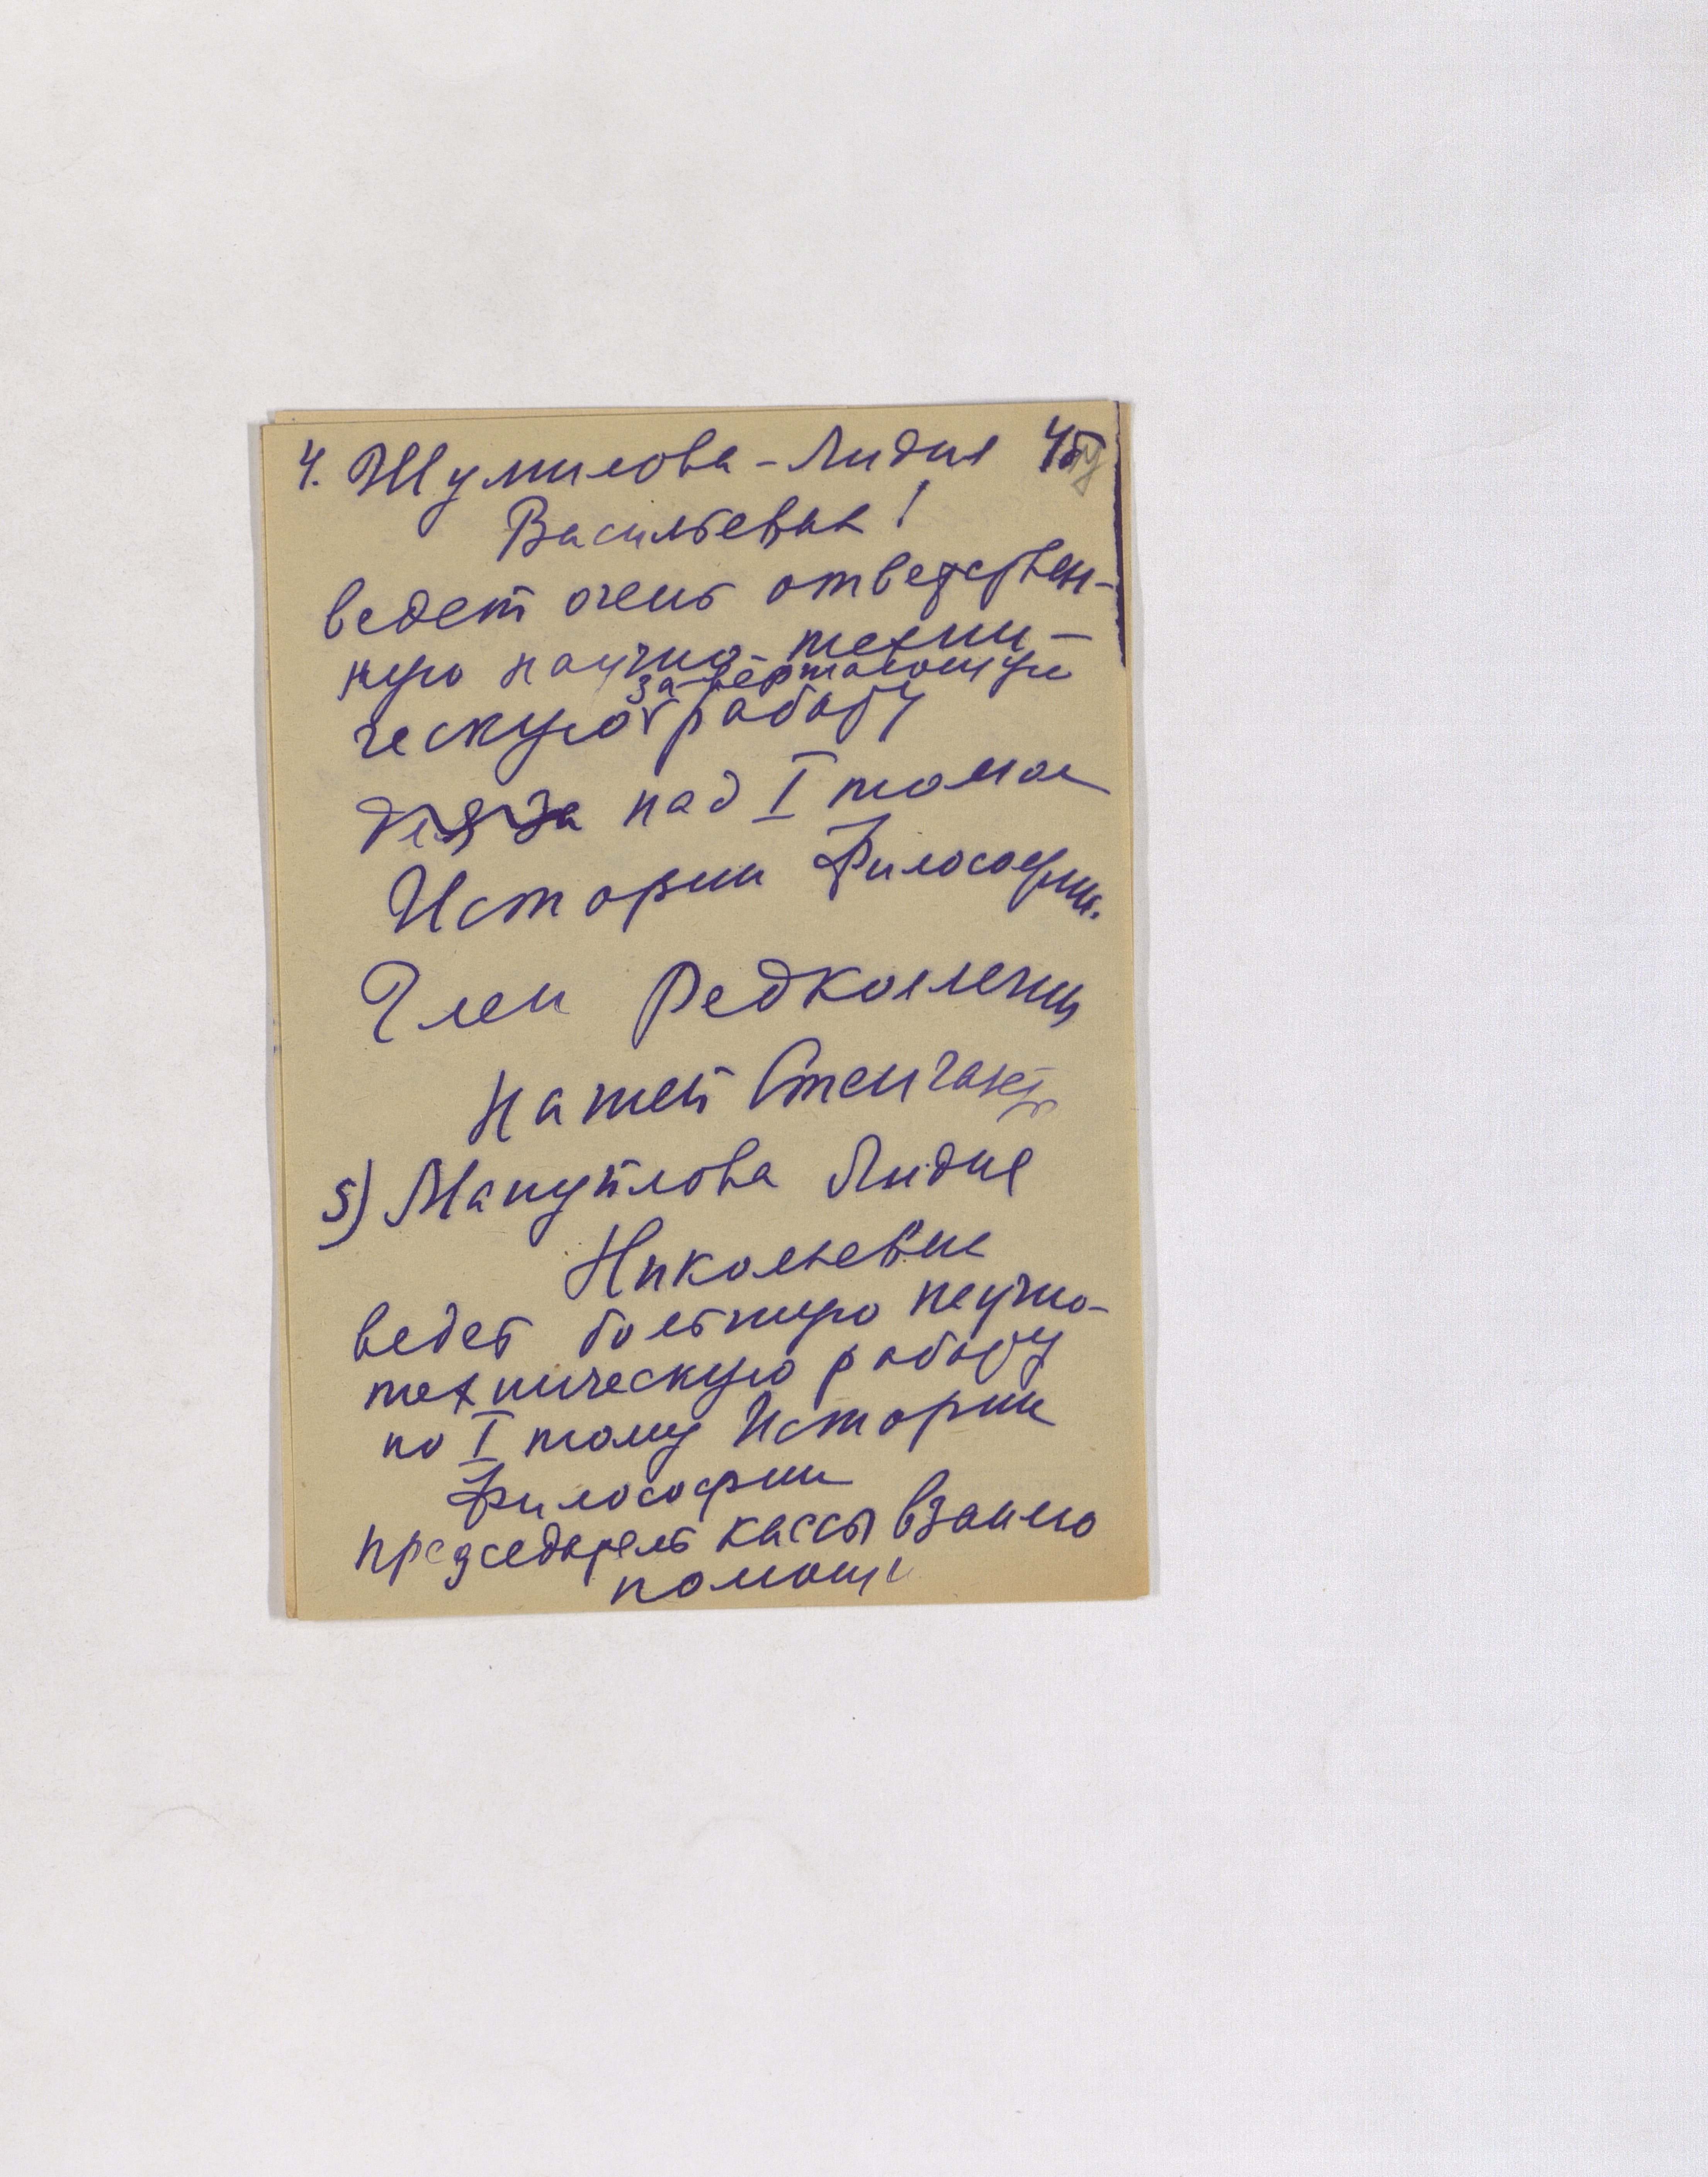 4. Шумилова - Лидия
Васильевна!
ведет очень ответствен-
ную научно-техни-
завершающую
ческую работу
над I томом
Истории Философии.
Член Редколлегии
нашей Стенгазеты
5) Мануйлова Лидия
Николаевна
ведет большую научно-
техническую работу
по I тому Истории
Философии
председатель кассы взаимо
помощи